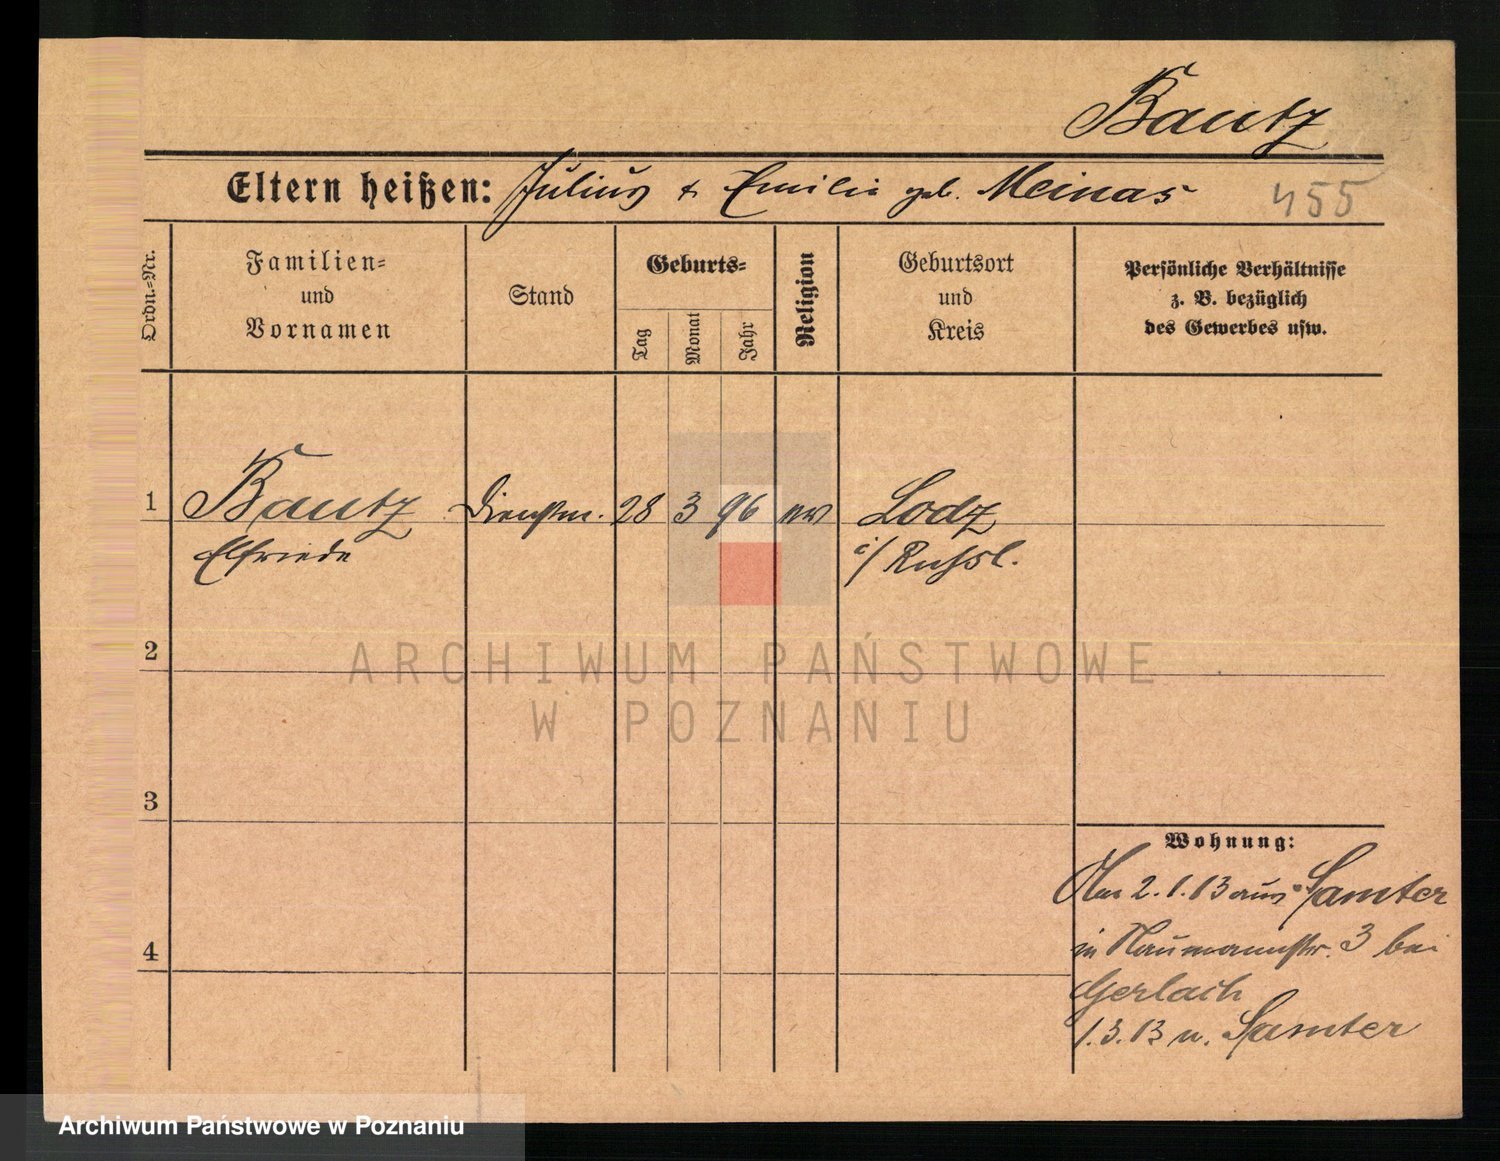 Bautz
Eltern heißen: Julius & Emilie geb. Meinas 455
Ordn.-Nr.
Familien-
und
Vornamen
Stand
Geburts-
Tag
Monat
Jahr
Religion
Geburtsort
und
Kreis
Persönliche Verhältnisse
z. B. bezüglich
des Gewerbes usw.
1 Bautz Dienstm. 28 3 96 ev Lodz
Elfriede i/ Russl.
2
ARCHIWUM PAŃSTWOWE
W POZNANIU
3
Wohnung:
2.1.13 aus Samter
4
in Naumannstr. 3 bei
Gerlach
1.3.13 n. Samter
Archiwum Państwowe w Poznaniu